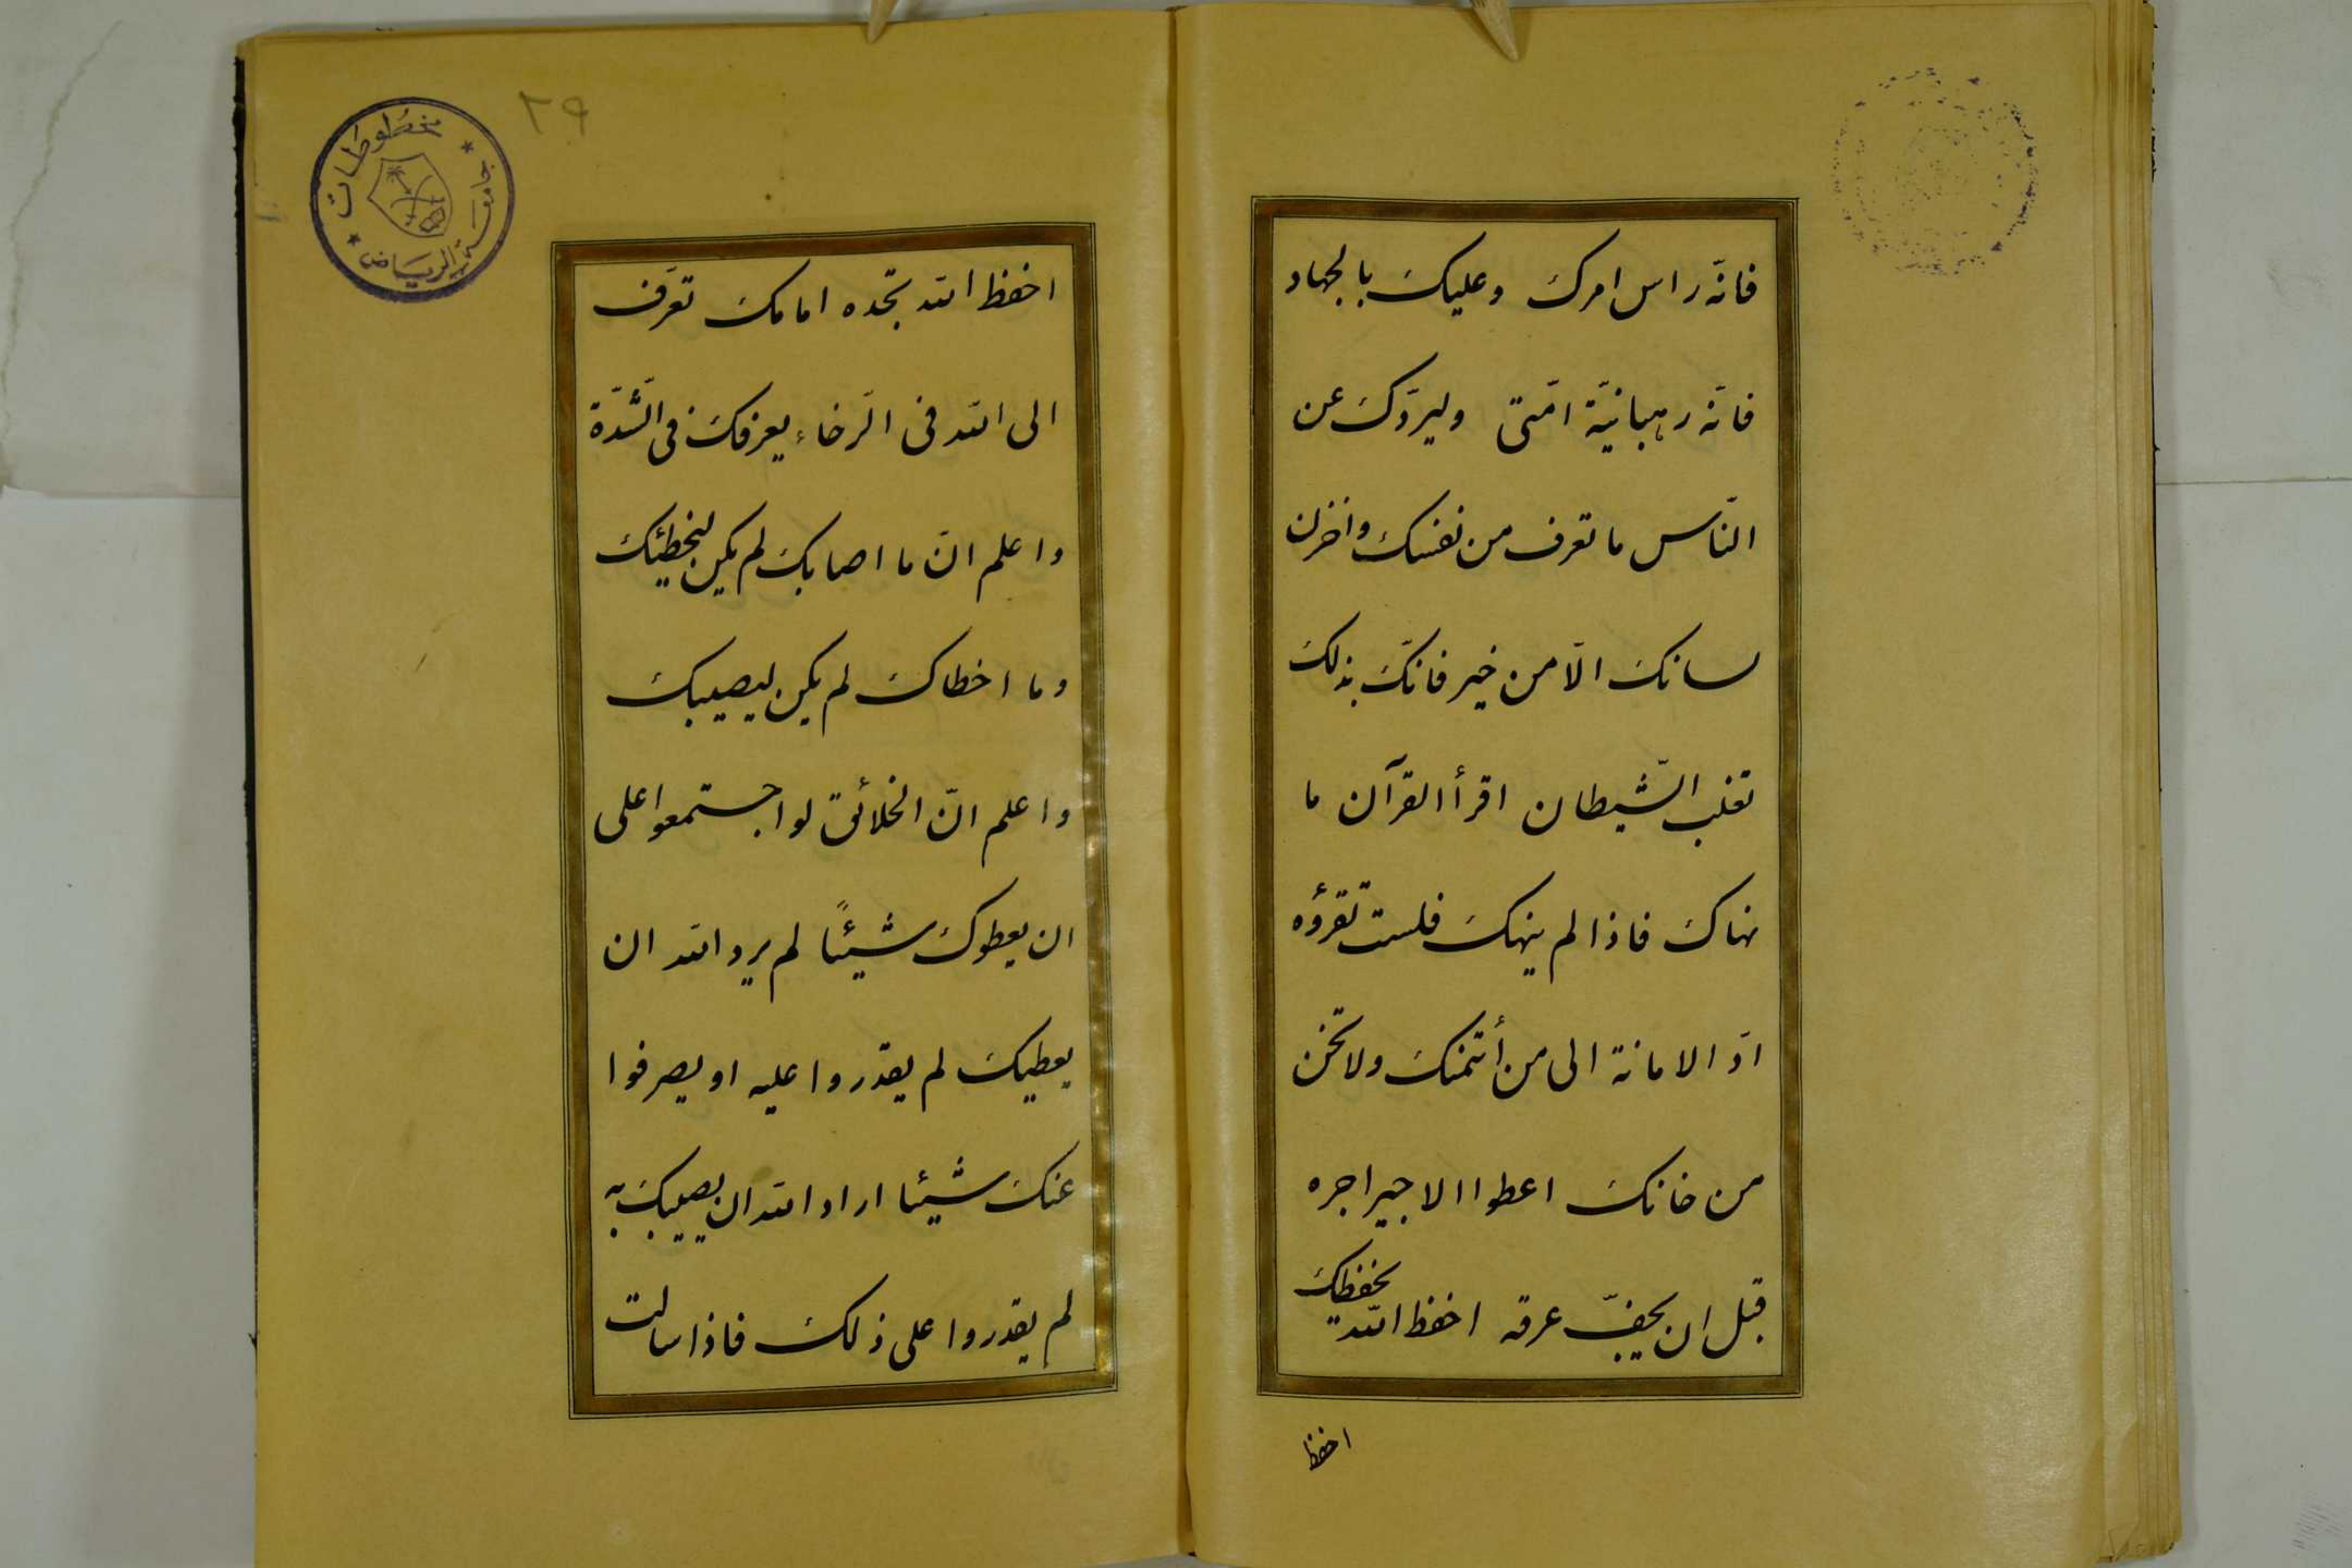 فانّه راس امرك وعليك بالجهاد
فانّه رهبانيّة امّتى وليردّك عن
النّاس ما تعرف من نفسك واخزن
لسانك الّا من خير فانّك بذلك
تغلب الشّيطان اقرأ القرآن ما
نهاك فاذا لم ينهك فلست تقرؤه
ادّ الامانة الى من أتمنك ولا تخن
من خانك اعطوا الاجير اجره
قبل ان يجفّ عرقه احفظ الله يحفظك
احفظ
٢٩
مخطوطات
جامعة الرياض
احفظ الله تجده امامك تعرّف
الى الله فى الرّخاء يعرفك فى الشّدّة
واعلم انّ ما اصابك لم يكن ليخطيئك
وما اخطاك لم يكن ليصيبك
واعلم انّ الخلائق لو اجتمعوا على
ان يعطوك شيئًا لم يرد الله ان
يعطيك لم يقدروا عليه او يصرفوا
عنك شيئا اراد الله ان يصيبك به
لم يقدروا على ذلك فاذا سالت